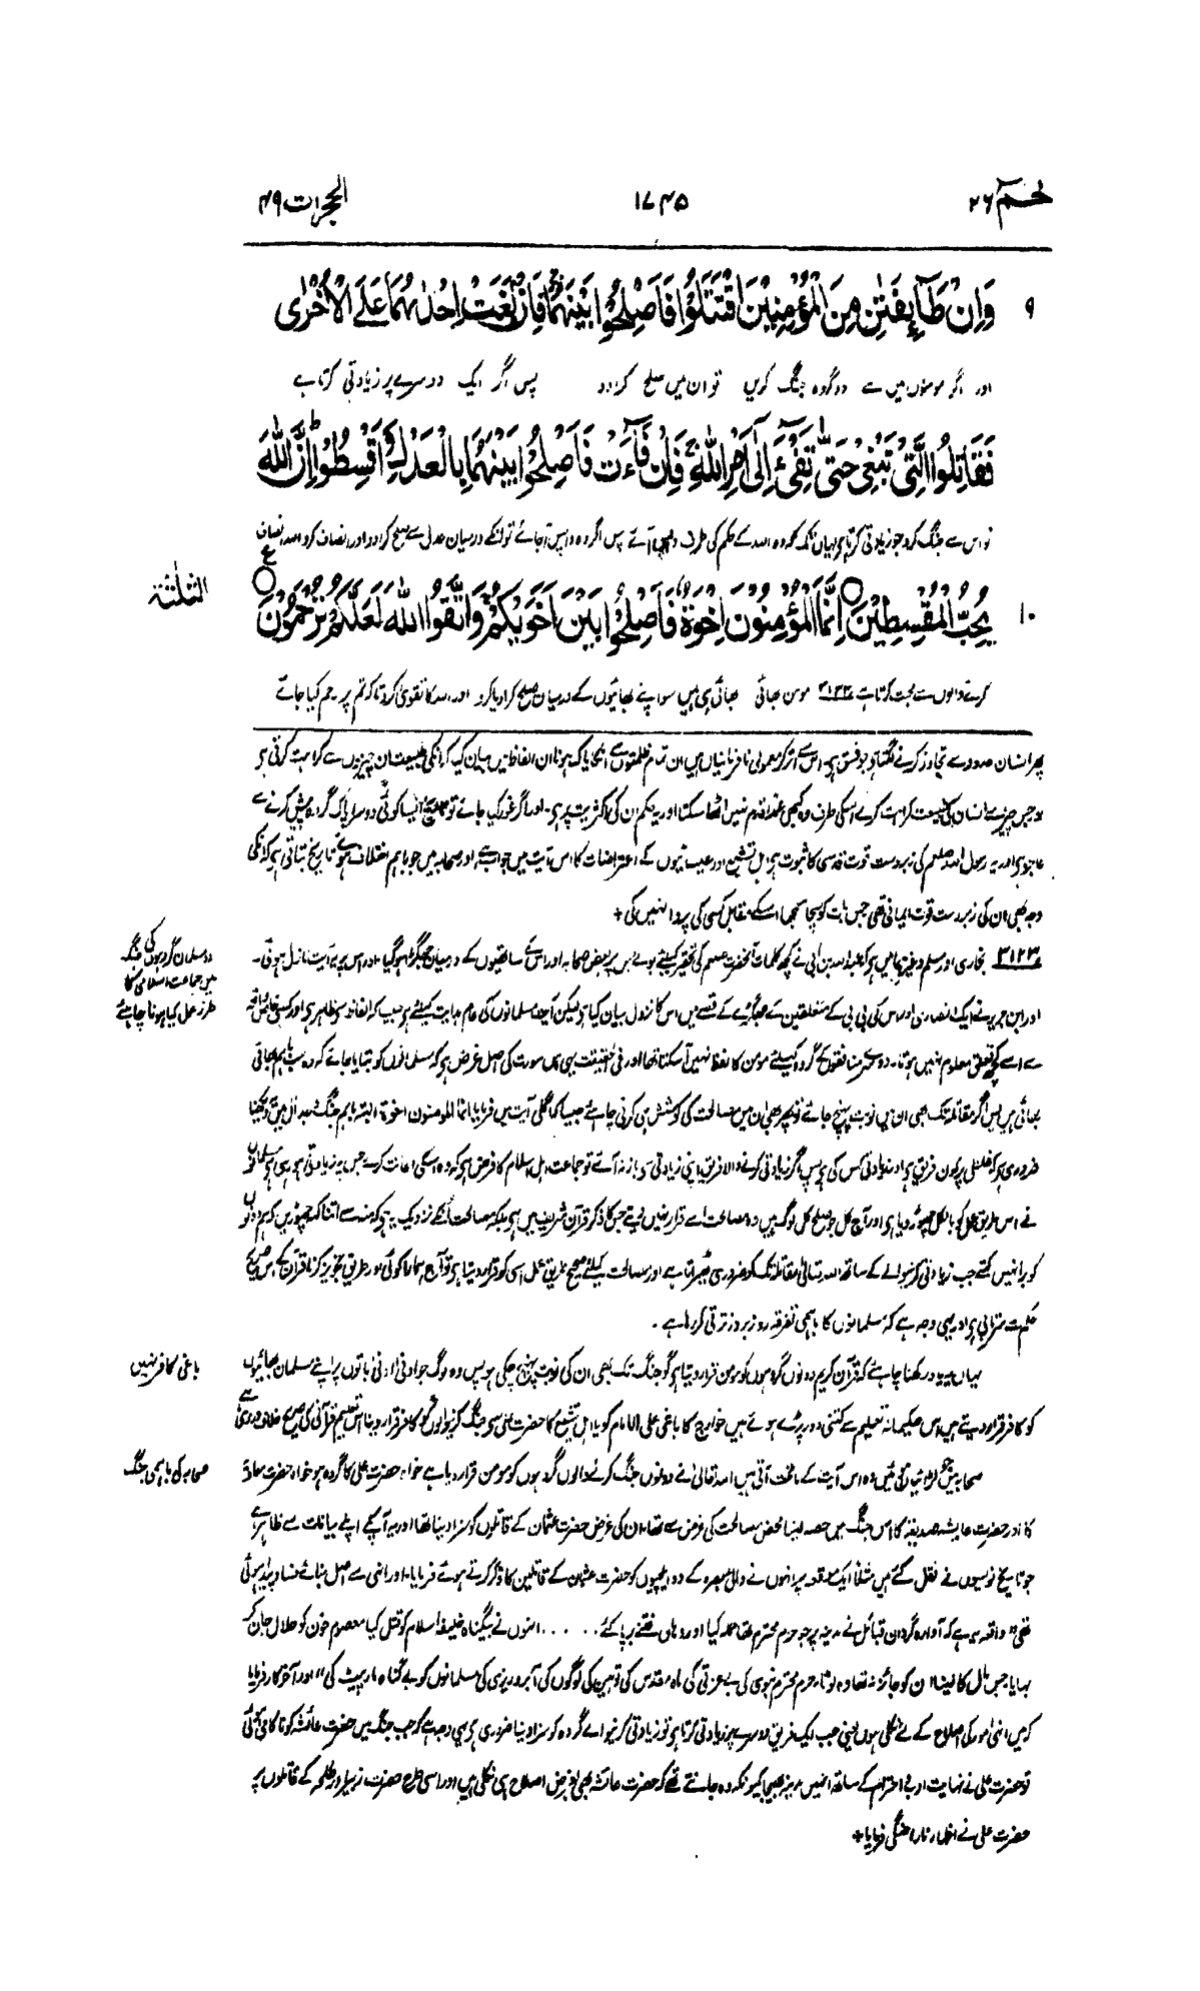 حٰم ۲۶
۱۷۴۵
الحجرات ۴۹
۹
وَاِنْ طَآىِٕفَتٰنِ مِنَ الْمُؤْمِنِیْنَ اقْتَتَلُوْا فَاَصْلِحُوْا بَیْنَهُمَا فَاِنْۢ بَغَتْ اِحْدٰىهُمَا عَلَى الْاُخْرٰى
اور اگر مومنوں میں سے دو گروہ جنگ کریں تو ان میں صلح کرا دو پس اگر ایک دوسرے پر زیادتی کرتا ہے
فَقَاتِلُوا الَّتِیْ تَبْغِیْ حَتّٰى تَفِیْٓءَ اِلٰۤى اَمْرِ اللّٰهِ فَاِنْ فَآءَتْ فَاَصْلِحُوْا بَیْنَهُمَا بِالْعَدْلِ وَاَقْسِطُوْا اِنَّ اللّٰهَ
تو اس سے جنگ کرو جو زیادتی کرتا ہے یہاں تک کہ وہ اللہ کے حکم کی طرف آئے پس اگر وہ واپس آجائے تو انکے درمیان عدل سے صلح کرا دو اور انصاف کرو اللہ انصاف
ع
الثلثة
۱۰
یُحِبُّ الْمُقْسِطِیْنَ اِنَّمَا الْمُؤْمِنُوْنَ اِخْوَةٌ فَاَصْلِحُوْا بَیْنَ اَخَوَیْكُمْ وَاتَّقُوا اللّٰهَ لَعَلَّكُمْ تُرْحَمُوْنَ
کرنے والوں سے محبت کرتا ہے ۳۱۲۳ مومن بھائی بھائی ہی ہیں سو اپنے بھائیوں کے درمیان صلح کرا دیا کرو اور اللہ کا تقویٰ کرو تاکہ تم پر رحم کیا جائے
پھر انسان حدود سے تجاوز کرنے لگتا ہے جو فسق ہے اس سے اتر کر معمولی نافرمانیاں ہیں ان تمام ان الفاظ میں بیان کیا کہ انکی طبیعت ان چیزوں سے کراہت کرتی ہے
اور جس چیز سے انسان کی طبیعت کراہت کرے اسکی طرف وہ کبھی عمداً قدم نہیں اٹھا سکتا اور یہ حکم ان کی اکثریت پر ہے۔ اور اگر غور کیا جائے تو ایسا کوئی دوسرا پاک گروہ پیش کرنے سے
عاجز ہے اور یہ رسول اللہ صلعم کی زبردست قوت قدسی کا ثبوت ہے اہل تشیع اور عیسائیوں کے اعتراضات کا اس آیت میں جواب ہے اور صحابہ میں جو باہم اختلاف ہوئے تاریخ بتاتی ہے کہ انکی
وجہ بھی ان کی زبردست قوت ایمانی تھی جس بات کو سچا سمجھا اسکے مقابل کسی کی پروا نہیں کی +
دو مسلمان گروہوں کی جنگ
میں جماعت اسلامی کا
طرز عمل کیا ہونا چاہئے
۳۱۲۳ بخاری اور مسلم وغیرہما میں ہے کہ عبد اللہ بن ابی نے کچھ کلمات آنحضرت صلعم کی تحقیر کیلئے بولے جس پر بعض صحابہ اور اس کے ساتھیوں کے درمیان جھگڑا ہو گیا۔ اور اس پر یہ آیت نازل ہوئی۔
اور ابن جریر نے ایک انصاری اور اس کی بی بی کے متعلقین کے جھگڑے کے قصے میں اس کا نزول بیان کیا ہے لیکن آیت مسلمانوں کی عام ہدایت کیلئے ہے جیسا کہ الفاظ سے ظاہر ہے اور کسی خاص واقعہ
سے اسے کچھ تعلق معلوم نہیں ہوتا۔ دوسرے منافقوں کے گروہ کیلئے مومن کا لفظ نہیں آسکتا تھا اور فی الحقیقت یہی اس سورت کی اصل غرض ہے کہ مسلمانوں کو بتایا جائے کہ وہ سب باہم بھائی
بھائی ہیں پس اگر مقاتلہ تک بھی ان میں نوبت پہنچ جائے تو پھر بھی ان میں مصالحت کی کوشش ہی کرنی چاہئے جیسا کہ اگلی آیت میں فرمایا انما المومنون اخوة البتہ باہم جنگ وجدال میں یہ دیکھنا
ضروری ہے کہ غلطی پر کون فریق ہے اور زیادتی کس کی ہے پس اگر زیادتی کرنے والا فریق اپنی زیادتی سے باز نہ آئے تو جماعت اہل اسلام کا فرض ہے کہ وہ اسکی اعانت کرے جس پر زیادتی ہو رہی ہے مسلمانوں
نے اس طریق عمل کو بالکل چھوڑ دیا ہے اور آج کل جو صلح کل لوگ ہیں وہ مصالحت اسے قرار نہیں دیتے جس کا ذکر قرآن شریف میں ہے بلکہ مصالحت انکے نزدیک یہ ہے کہ منہ سے اتنا کہہ چھوڑیں کہ ہم دونوں
کو برا نہیں کہتے جب زیادتی کرنیوالے کے ساتھ اللہ تعالیٰ مقاتلہ تک کو ضروری ٹھیراتا ہے اور مصالحت کیلئے صحیح طریق عمل اسی کو قرار دیتا ہے تو آج ہمارا کوئی اور طریق تجویز کرنا قرآن کے صریح
حکم سے سرتابی ہے اور یہی وجہ ہے کہ مسلمانوں کا باہمی تفرقہ روز بروز ترقی کر رہا ہے۔
باغی کافر نہیں
یہاں یہ یاد رکھنا چاہئے کہ قرآن کریم دونوں گروہوں کو مومن قرار دیتا ہے گو جنگ تک بھی ان کی نوبت پہنچ چکی ہو پس وہ لوگ جو ادنیٰ ادنیٰ باتوں پر اپنے مسلمان بھائیوں
کو کافر قرار دیتے ہیں اس حکیمانہ تعلیم سے کتنی دور پڑے ہوئے ہیں خوارج کا باغی علی الامام کو یا اہل تشیع کا حضرت علی سے جنگ کرنیوالوں کو کافر قرار دینا اس تعلیم قرآنی کی صریح خلاف ورزی ہے
صحابہ کی باہمی جنگ
صحابہ میں جو لڑائیاں ہوئیں وہ اس آیت کے ماتحت آتی ہیں اللہ تعالیٰ نے دونوں جنگ کرنے والوں گروہوں کو مومن قرار دیا ہے خواہ حضرت علی کا گروہ ہو خواہ حضرت معاویہ
کا اور حضرت عائشہ صدیقہ کا اس جنگ میں حصہ لینا محض مصالحت کی غرض سے تھا ان کی غرض حضرت عثمان کے قاتلوں کو سزا دینا تھا اور یہ آپکے اپنے بیانات سے ظاہر ہے
جو تاریخ نویسوں نے نقل کئے ہیں مثلاً ایک موقعہ پر انہوں نے والی بصرہ کے دو ایلچیوں کو حضرت عثمان کے قاتلین کا ذکر کرتے ہوئے فرمایا۔ اور انہی سے اصل بنائے فساد پیدا ہوئی
تھی "واقعہ یہ ہے کہ آوارہ گردان قبائل نے مدینہ پر جو حرم محترم تھا حملہ کیا اور وہاں فتنے برپا کئے ..... انہوں نے بیگناہ خلیفہ اسلام کو قتل کیا معصوم خون کو حلال جان کر
بہایا جس مال کا لینا ان کو جائز نہ تھا وہ لوٹا۔ حرم محترم نبوی کی بے عزتی کی ماہ مقدس کی توہین کی لوگوں کی آبروریزی کی مسلمانوں کو بے گناہ مار پیٹ کی" اور آخرکار فرمایا
کہ میں انہی امور کی اصلاح کے لئے نکلی ہوں یعنی جب ایک فریق دوسرے پر زیادتی کرتا ہے تو زیادتی کرنیوالے گروہ کو سزا دینا ضروری ہے یہی وجہ ہے کہ جب جنگ میں حضرت عائشہ کو ناکامی ہوئی
تو حضرت علی نے نہایت ادب و احترام کے ساتھ انہیں مدینہ بھیجا کیونکہ وہ جانتے تھے کہ حضرت عائشہ بھی بغرض اصلاح ہی نکلی ہیں اور اسی طرح حضرت زبیر اور طلحہ کے قاتلوں پر
حضرت علی نے اظہار ناراضگی فرمایا +